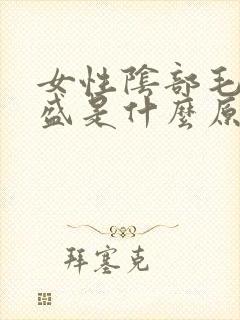 女性陰部毛
盛是什麼原
拜塞克